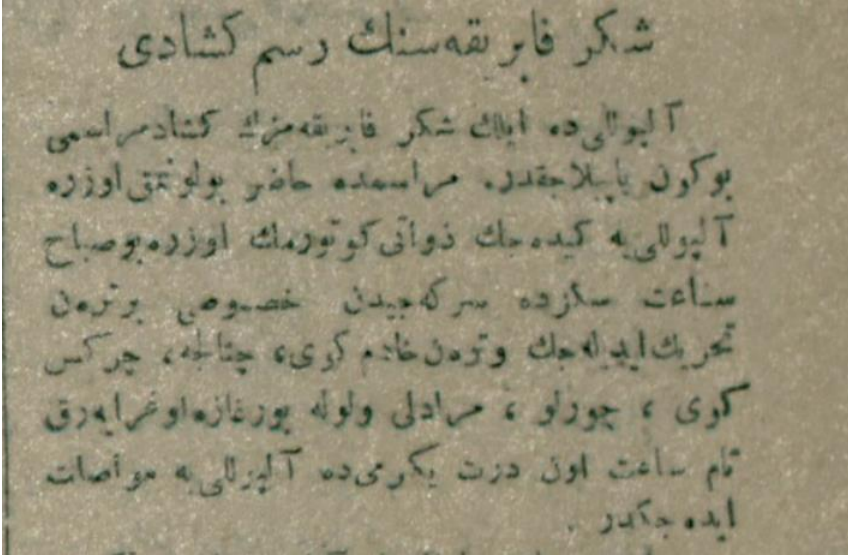 شكر فابريقه‌سنك رسم كشادى
آلپوللى‌ده ايلك شكر فابريقه‌مزك كشاد مراسمى
بوكون ياپيلاجقدر. مراسمده حاضر بولونمق اوزره
آلپوللى‌يه كيده‌جك ذواتى كوتورمك اوزره بو صباح
ساعت سكزده سركه‌جيدن خصوصى بر ترەن
تحريك ايديله‌جك و ترەن خادم كوى، چتالجه، چركس
كوى، چورلو، مرادلى ولوله بورغازه اوغرايه‌رق
تام ساعت اون درت يكرمى‌ده آلپوللى‌يه مواصلت
ايده‌جكدر.